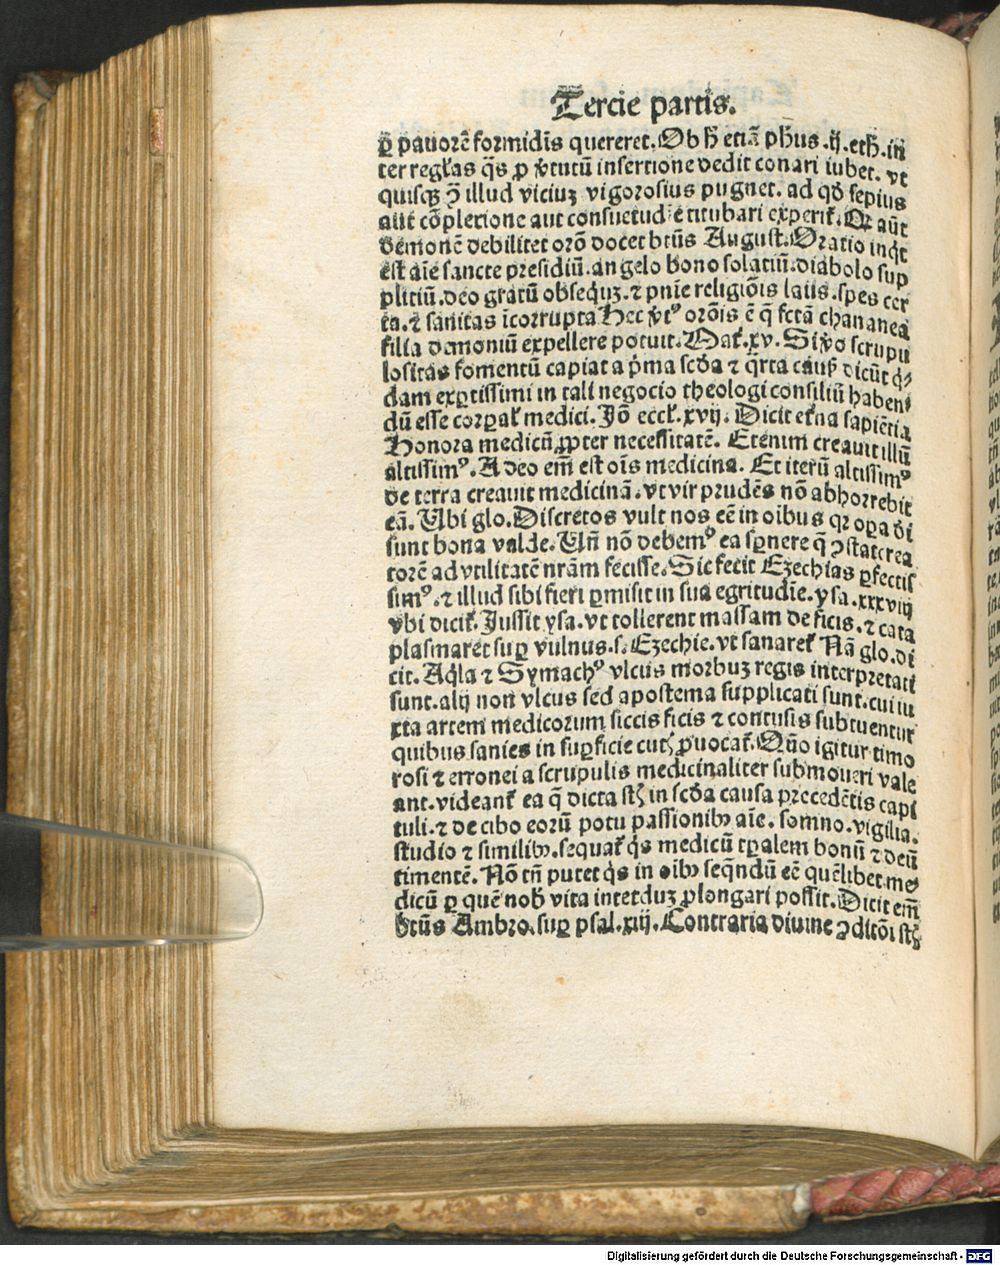 Tercie partis.
ꝑ pauorē formidīs quereret. Ob h̄ etiā ph̄us .ij. eth. in
ter regl̓as q̄s ꝓ v̓tutū insertione dedit conari iubet. vt
quisqꝫ ꝯ̄ illud viciuꝫ vigorosius pugnet. ad qđ sepius
aut cōplexione aut consuetudīe titubari experit̓. Qꝛ aūt
demonē debilitet orō docet btūs August. Oratio inq̇t
est aīe sancte presidiū. angelo bono solatiū. diabolo sup
plitiū. deo gratū obsequꝫ. ⁊ pnīe religiōis laus. spes cer
ta. ⁊ sanitas īcorrupta Hec v̓tꝰ orōis ē q̄ fctā chananea
filia demoniū expellere potuit. Mat̓. xv. Si v̓o scrupu
lositas fomentū capiat a p̓ma scđa ⁊ q̓rta caus̓ dicūt q̓
dam exꝑtissimi in tali negocio theologi consiliū haben
dū esse corꝑal̓ medici. Jō eccl̓. xvij. Dicit et̓na sapiētia
Honora medicū ꝓpter necessitatē. Etenim creauit illū
altissimꝰ. A deo em̄ est oīs medicina. Et iterū altissimꝰ
de terra creauit medicinā. vt vir prudēs nō abhorrebit
eā. Ubi glo. Discretos vult nos eē in oibus qꝛ oꝑa di
sunt bona valde. Uñ nō debemꝰ ea sꝑnere q̄ ꝯstat crea
torē ad vtilitatē nr̄am fecisse. Sic fecit Ezechias ꝑfectis
simꝰ. ⁊ illud sibi fieri ꝑmisit in sua egritudīe. ysa. xxxviij
vbi dicit̓. Jussit ysa. vt tollerent massam de ficis. ⁊ cata
plasmarēt suꝑ vulnus .s. Ezechie. vt sanaret̓ Nā glo. di
cit. Aq̓la ⁊ Symachꝰ vlcus morbuꝫ regis interpretati
sunt. alij non vlcus sed apostema supplicati sunt. cui iu
xta artem medicorum siccis ficis ⁊ contusis subtuentur
quibus sanies in suꝑficie cutꝭ ꝓuocat̓. Quō igitur timo
rosi ⁊ erronei a scrupulis medicinaliter submoueri vale
ant. videant̓ ea q̄ dicta stꝭ in scđa causa precedētis capi
tuli. ⁊ de cibo eorū potu passionibꝫ aīe. somno. vigilia.
studio ⁊ similibꝫ. sequat̓ q̓s medicū tꝑalem bonū ⁊ deū
timentē. Nō tn̄ putet q̓s in oibꝫ seq̄ndū eē quēlibet me
dicū ꝑ quē nob̓ vita interduꝫ ꝓlongari possit. Dicit em̄
btūs Ambro. suꝑ psal. xiij. Contraria diuine ꝯditōi stꝭ
Digitalisierung gefördert durch die Deutsche Forschungsgemeinschaft - DFG